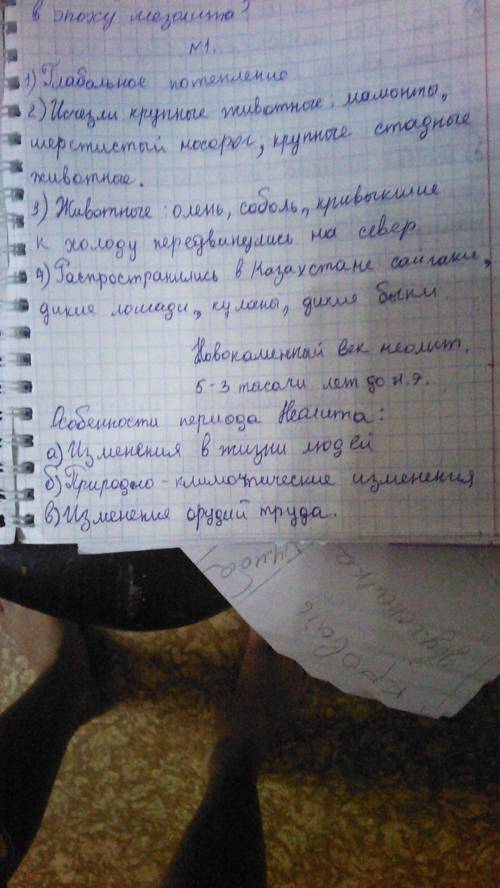 в эпоху мезолита?
№1.
1) Глабольное потепление
2) Исчезли крупные животные: мамонты,
шерстистый носорог, крупные стадные
животные.
3) Животные: олень, соболь, привыкшие
к холоду передвинулись на север.
4) Распространились в Казахстане сайгаки,
дикие лошади, куланы, дикие быки.
Новокаменный век неолит.
5-3 тысачи лет до н.э.
Особенности периода Неолита:
а) Изменения в жизни людей
б) Природно-климотические изменения
в) Изменения орудий труда.
тумба
двуспалка
кровать